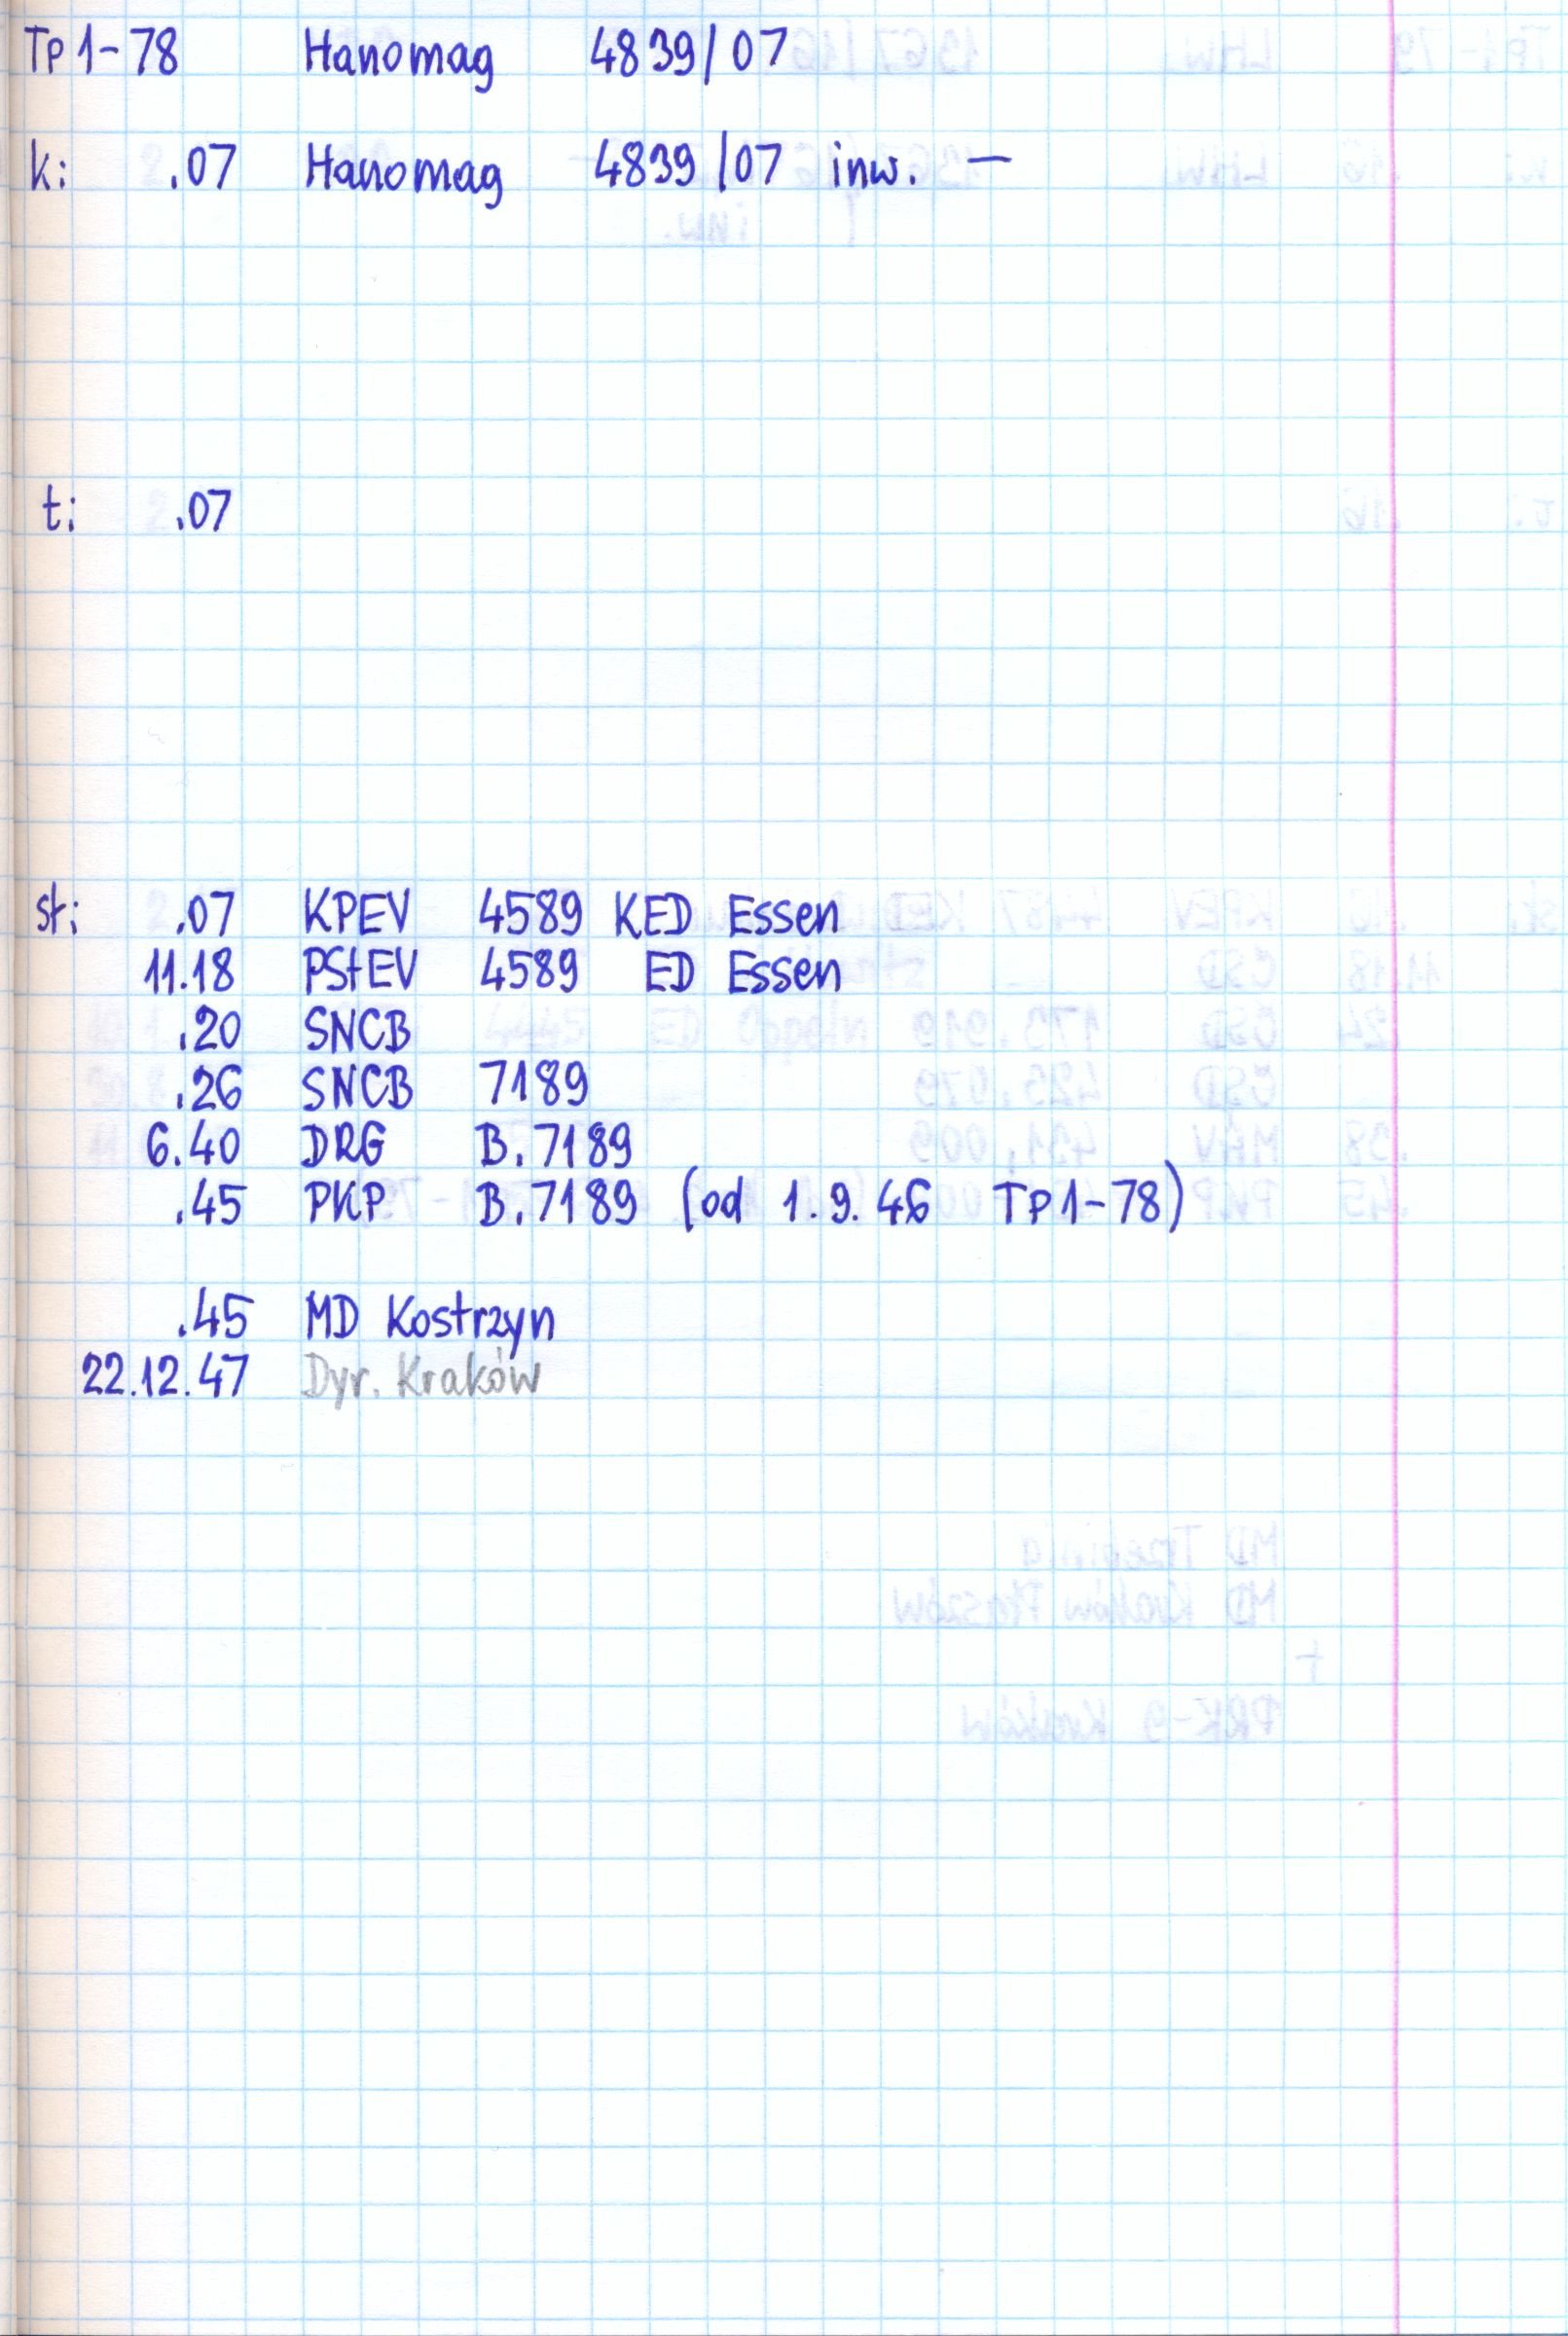 Tp1-78 Hanomag 4839/07
k: .07 Hanomag 4839/07 inw. —
t: .07
st: .07 KPEV 4589 KED Essen
11.18 PStEV 4589 ED Essen
.20 SNCB
.26 SNCB 7189
6.40 DRG B.7189
.45 PKP B.7189 (od 1.9.46 Tp1-78)
.45 MD Kostrzyn
22.12.47 Dyr. Kraków